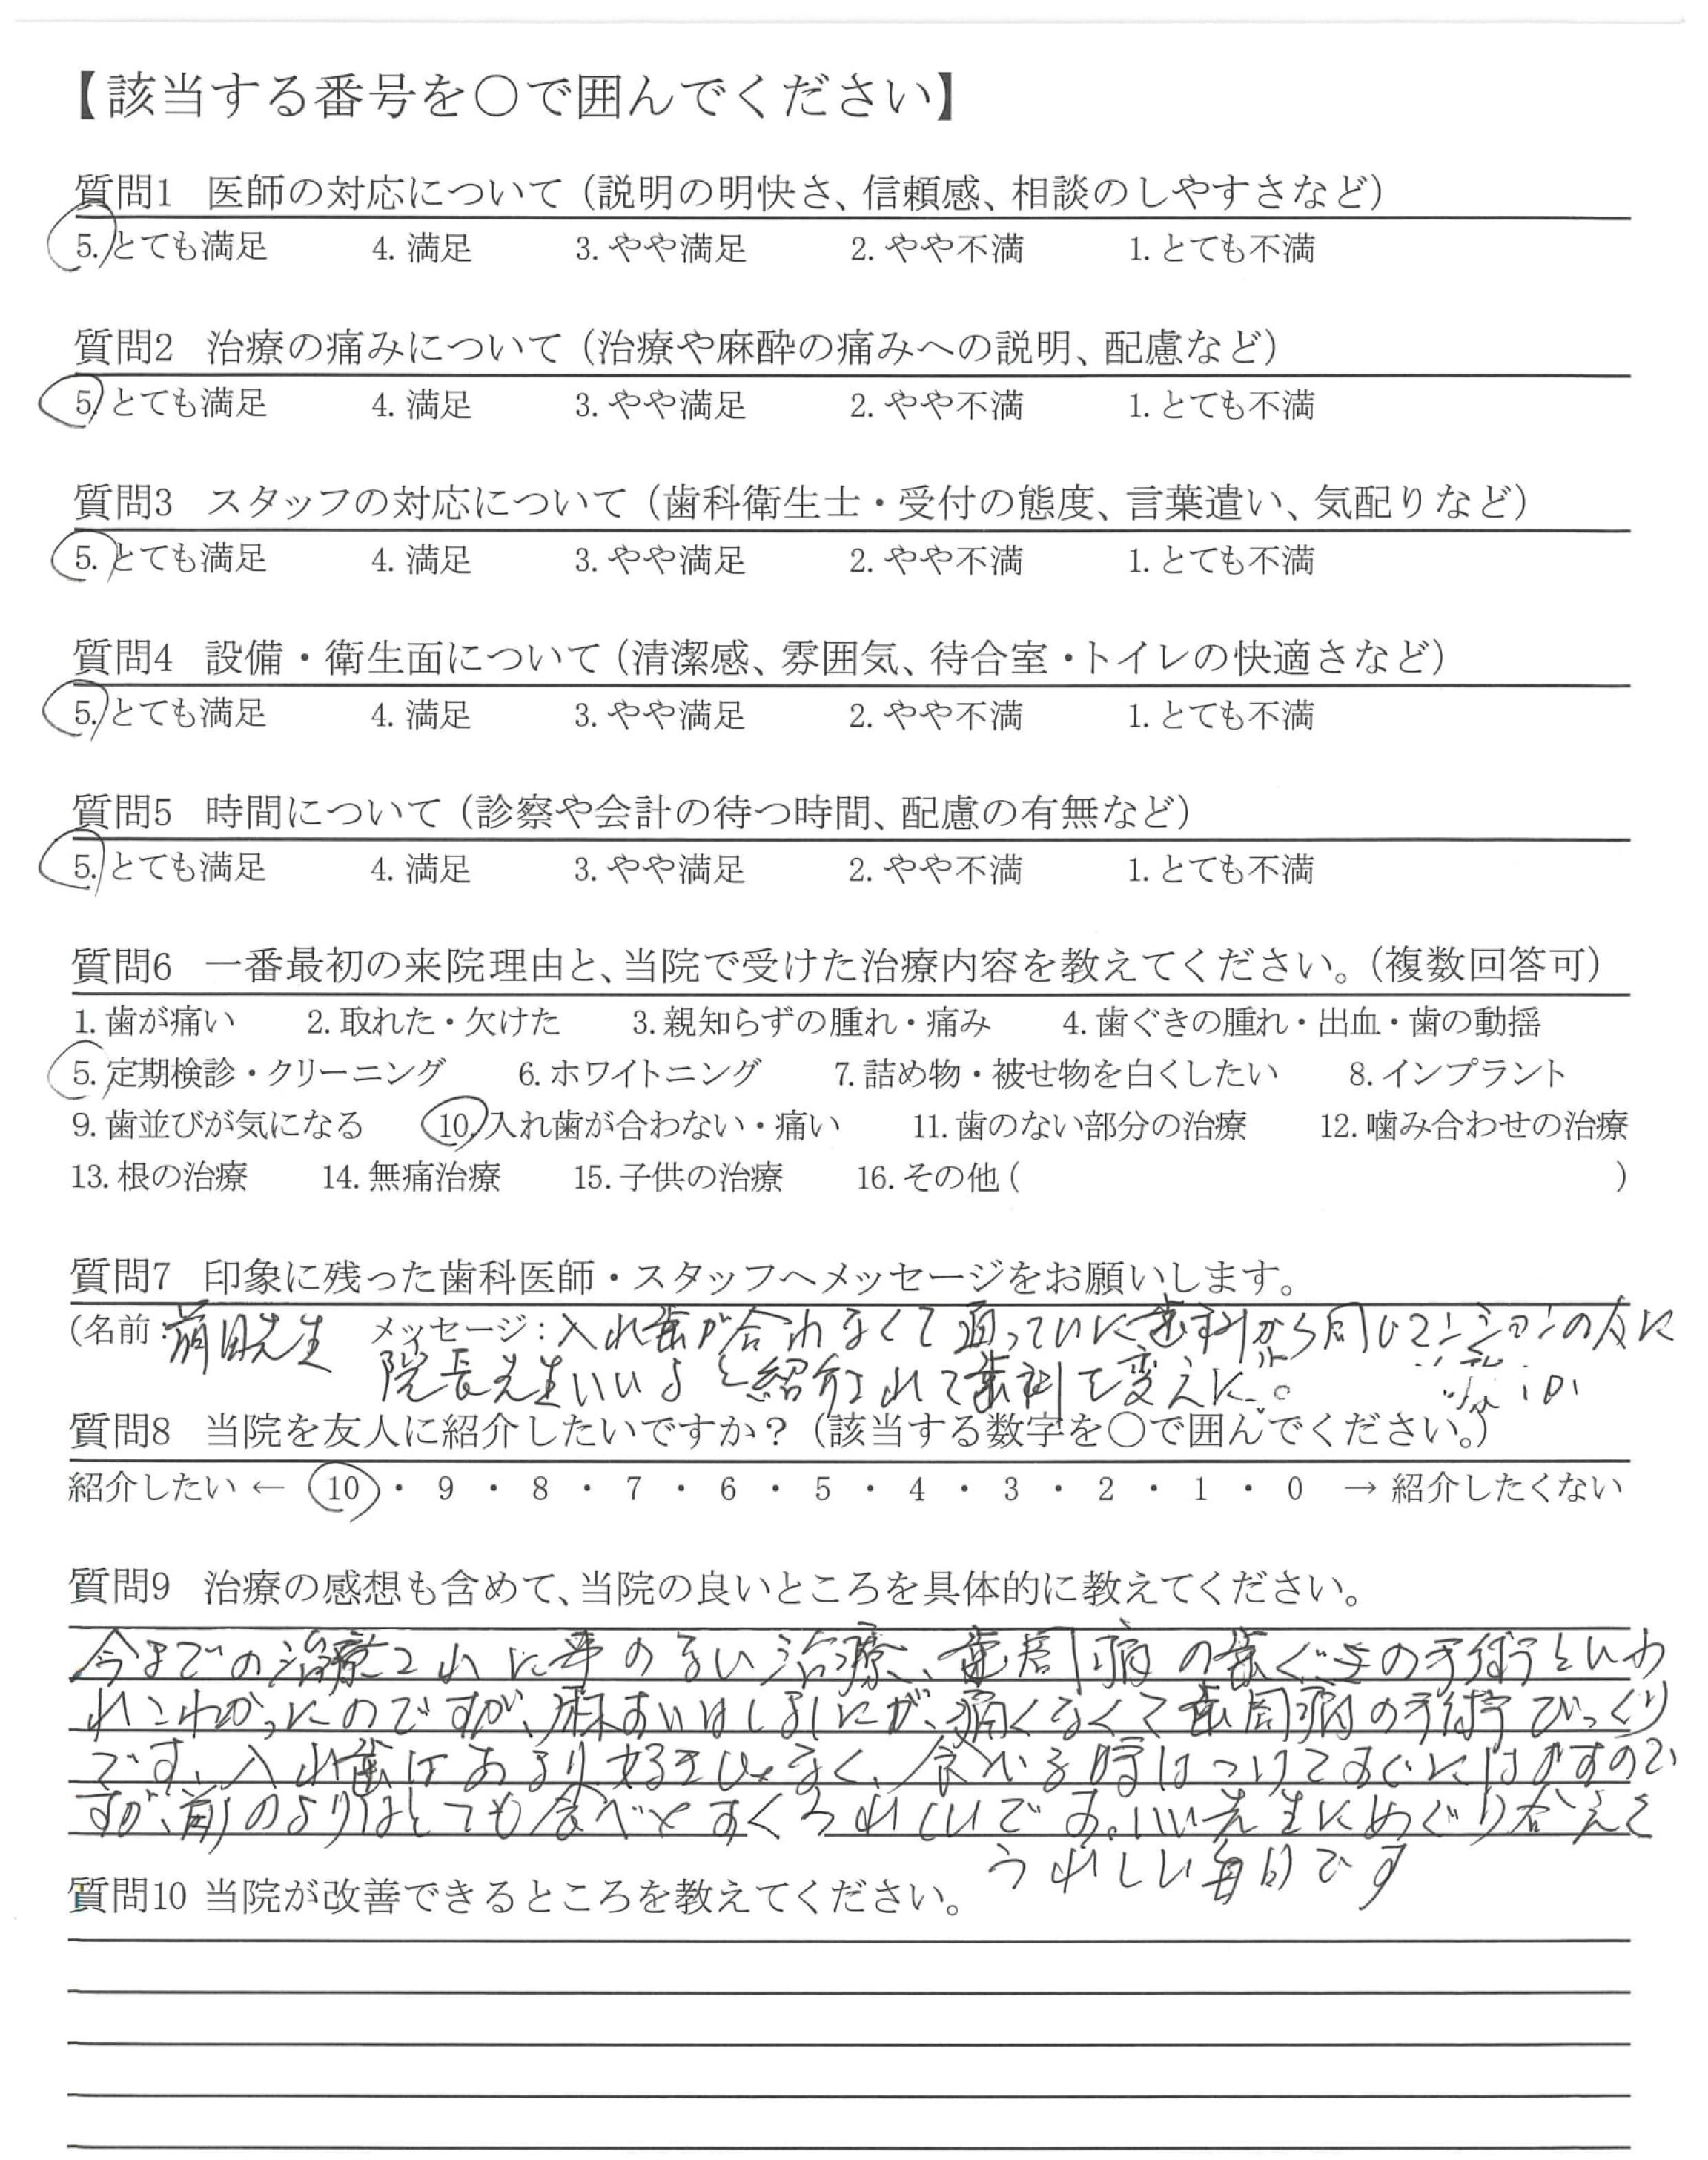 【該当する番号を〇で囲んでください】
質問1 医師の対応について（説明の明快さ、信頼感、相談のしやすさなど）
5. とても満足 4. 満足 3. やや満足 2. やや不満 1. とても不満
質問2 治療の痛みについて（治療や麻酔の痛みへの説明、配慮など）
5. とても満足 4. 満足 3. やや満足 2. やや不満 1. とても不満
質問3 スタッフの対応について（歯科衛生士・受付の態度、言葉遣い、気配りなど）
5. とても満足 4. 満足 3. やや満足 2. やや不満 1. とても不満
質問4 設備・衛生面について（清潔感、雰囲気、待合室・トイレの快適さなど）
5. とても満足 4. 満足 3. やや満足 2. やや不満 1. とても不満
質問5 時間について（診察や会計の待つ時間、配慮の有無など）
5. とても満足 4. 満足 3. やや満足 2. やや不満 1. とても不満
質問6 一番最初の来院理由と、当院で受けた治療内容を教えてください。（複数回答可）
1. 歯が痛い 2. 取れた・欠けた 3. 親知らずの腫れ・痛み 4. 歯ぐきの腫れ・出血・歯の動揺
5. 定期検診・クリーニング 6. ホワイトニング 7. 詰め物・被せ物を白くしたい 8. インプラント
9. 歯並びが気になる 10. 入れ歯が合わない・痛い 11. 歯のない部分の治療 12. 噛み合わせの治療
13. 根の治療 14. 無痛治療 15. 子供の治療 16. その他（ ）
質問7 印象に残った歯科医師・スタッフへメッセージをお願いします。
（名前：前田先生 メッセージ：入れ歯が合わなくて通っていた歯科から同じマンションの人に
院長先生いいよと紹介されて歯科を変えた。
質問8 当院を友人に紹介したいですか？（該当する数字を〇で囲んでください。）
紹介したい ← 10 ・ 9 ・ 8 ・ 7 ・ 6 ・ 5 ・ 4 ・ 3 ・ 2 ・ 1 ・ 0 → 紹介したくない
質問9 治療の感想も含めて、当院の良いところを具体的に教えてください。
今までの治療された事のない治療、歯周病の歯ぐきの手術といわ
れこわかったのですが、麻すいはしましたが、痛くなくて歯周病の手術びっくり
です。入れ歯はあまり好きじゃなく、食べる時はつけてすぐにはがすので
すが、前のよりはとても食べやすくうれしいです。いい先生にめぐり合えて
うれしい毎日です
質問10 当院が改善できるところを教えてください。